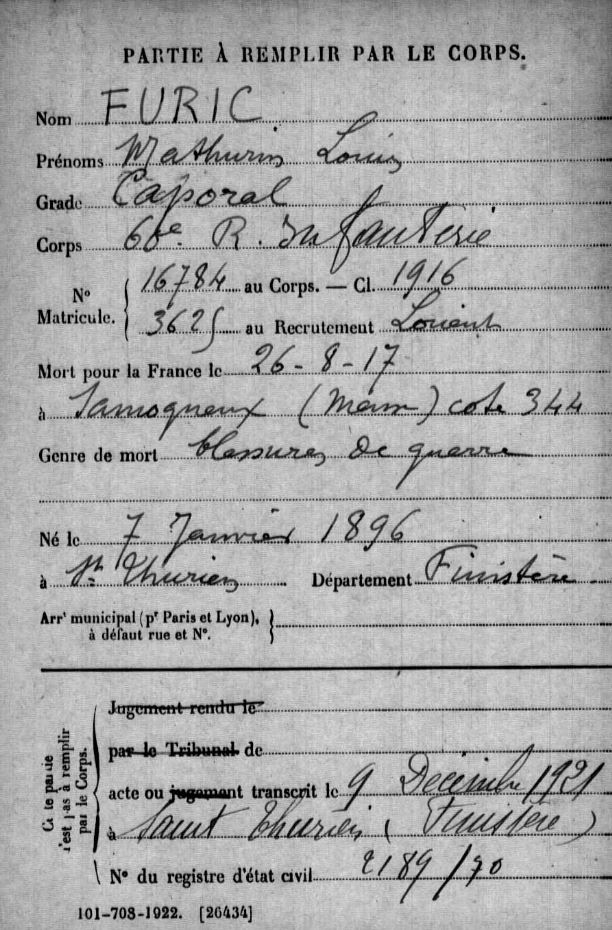 PARTIE À REMPLIR PAR LE CORPS.
Nom FURIC
Prénoms Mathurin Louis
Grade Caporal
Corps R. Infanterie
N° Matricule. 16784 au Corps. — Cl. 1916
3625 au Recrutement Lorient
Mort pour la France le 26-8-17
à Samogneux (Meuse) cote 344
Genre de mort blessures de guerre
Né le 7 Janvier 1896
à St. Thurien Département Finistère
Arrt municipal (pr Paris et Lyon), à défaut rue et N°.
Jugement rendu le
par le Tribunal de
acte ou jugement transcrit le 9 Décembre 1921
à Saint Thurien (Finistère)
N° du registre d'état civil 2189/70
Cette partie n'est pas à remplir par le Corps.
101-708-1922. [26434]